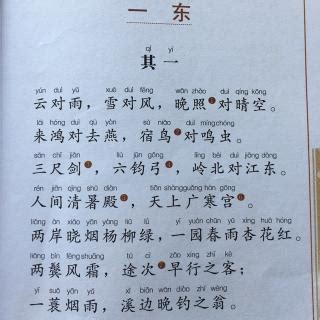 一 东
qí yī
其一
yún duì yǔ xuě duì fēng wǎn zhào duì qíng kōng
云对雨，雪对风，晚照❶对晴空。
lái hóng duì qù yàn sù niǎo duì míng chóng
来鸿对去燕，宿鸟❷对鸣虫。
sān chǐ jiàn liù jūn gōng lǐng běi duì jiāng dōng
三尺剑❸，六钧弓❹，岭北对江东。
rén jiān qīng shǔ diàn tiān shàng guǎng hán gōng
人间清暑殿❺，天上广寒宫❻。
liǎng àn xiǎo yān yáng liǔ lǜ yì yuán chūn yǔ xìng huā hóng
两岸晓烟杨柳绿，一园春雨杏花红。
liǎng bìn fēng shuāng tú cì zǎo xíng zhī kè
两鬓风霜，途次❼早行之客；
yì suō yān yǔ xī biān wǎn diào zhī wēng
一蓑烟雨，溪边晚钓之翁。